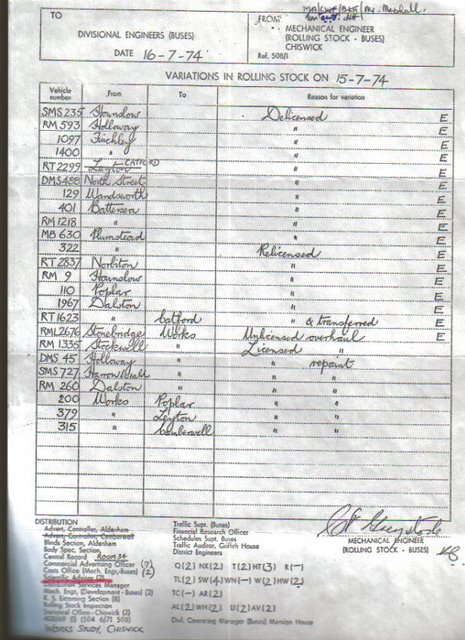 TO
DIVISIONAL ENGINEERS (BUSES)
DATE 16-7-74
FROM
MECHANICAL ENGINEER
(ROLLING STOCK - BUSES)
CHISWICK
Ref. 508/1
VARIATIONS IN ROLLING STOCK ON 15-7-74
Vehicle number From To Reason for variation
SMS 235 Hounslow Delicensed E
RM 593 Holloway " E
1097 Finchley " E
1400 " " E
RT 2299 Leyton CATFORD " E
DMS 488 North Street " E
129 Wandsworth " E
401 Battersea " E
RM 1218 " " E
MB 630 Plumstead " E
322 " Relicensed E
RT 2837 Norbiton " E
RM 9 Hounslow " E
110 Poplar " E
1967 Dalston " E
RT 1623 " Catford " & transferred E
RML 2676 Stonebridge Works Unlicensed overhaul E
RM 1335 Stockwell " Licensed "
DMS 45 Holloway " " repaint
SMS 727 Harrow Weald " " "
RM 260 Dalston " " "
200 Works Poplar " "
379 " Leyton " "
315 " Camberwell " "
MECHANICAL ENGINEER
(ROLLING STOCK - BUSES)
DISTRIBUTION
Advert, Controller, Aldenham
Advert, Controller, Camberwell
Blinds Section, Aldenham
Body Spec. Section
Central Record ROOM 34
Commercial Advertising Officer (7)
Costs Office (Mech. Engr. Buses) (2)
Services Manager
Mech. Engr. (Development - Buses)
R. S. Licensing Section (8)
Rolling Stock Inspection
Statistical Office - Chiswick (2)
WORKS STUDY, CHISWICK
Traffic Supt. (Buses)
Financial Research Officer
Schedules Supt. Buses
Traffic Auditor, Griffith House
District Engineers
Q(2) NX(2) T(2) HT(3) R(-)
TL(2) SW(4) WN(-) W(2) HW(2)
TC(-) AR(2)
AL(2) WH(2) U(2) AV(2)
Divl. Operating Manager (Buses) Mansion House